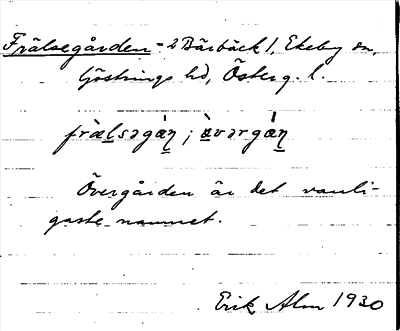 Frälsegården - 2 Bärbäck 1, Ekeby sn,
Göstrings hd, Österg. l.
fràlsəgán; àvərgán
Övergården är det vanli-
gaste namnet.
Erik Alm 1930